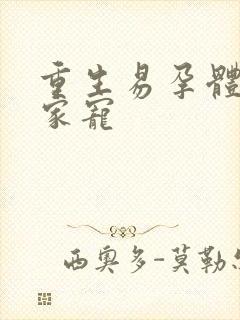 重生易孕體
家寵
西奧多-莫勒